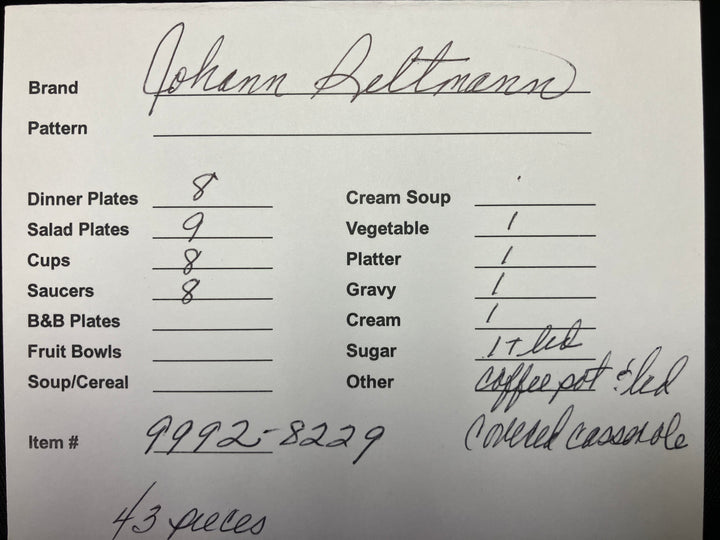 Brand Johann Seltmann
Pattern
Dinner Plates 8 Cream Soup
Salad Plates 9 Vegetable 1
Cups 8 Platter 1
Saucers 8 Gravy 1
B&B Plates Cream 1
Fruit Bowls Sugar 1 + lid
Soup/Cereal Other coffee pot & lid
covered casserole
Item # 9992-8229
43 pieces